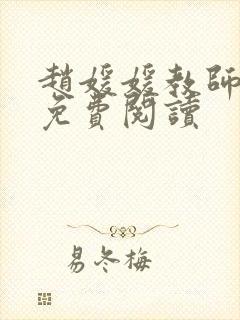 趙媛媛教師
免費閱讀
易冬梅